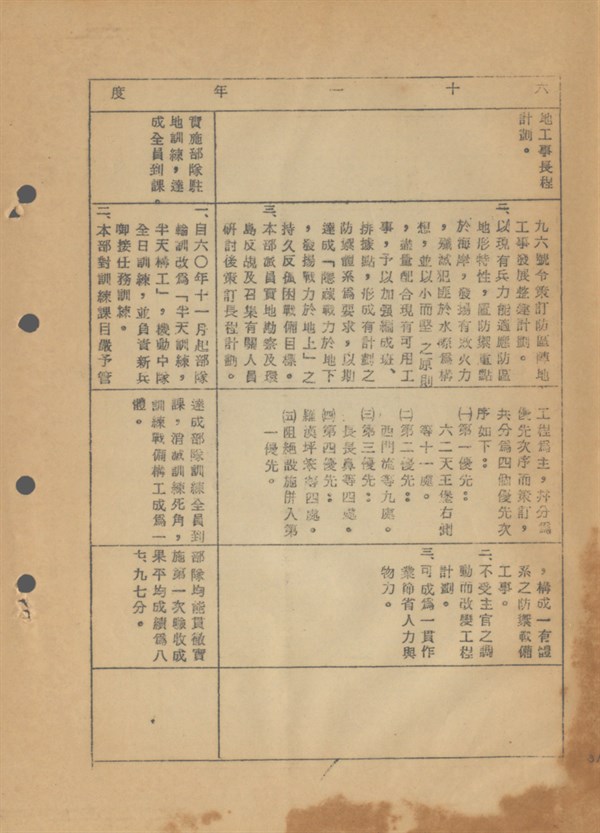 六十一年度
地工事長程
計劃。
九六號令策訂防區陣地
工事發展整建計劃。
二、以現有兵力能適應防區
地形特性，置防禦重點
於海岸，發揚有效火力
，殲滅犯匪於水際爲構
想，並以小而堅之原則
，盡量配合現有可用工
事，予以加强編成班、
排據點，形成有計劃之
防禦體系爲要求，以期
達成「隱藏戰力於地下
，發揚戰力於地上」之
持久反困戰備目標。
三、本部派員實地勘察及環
島反及召集有關人員
研討後策訂長程計劃。
工程爲主，並分爲
優先次序而策訂，
共分爲四個優先次
序如下：
㈠第一優先：
六二天王堡右側
等十一處。
㈡第二優先：
西門流等九處。
㈢第三優先：
長長鼻等四處。
㈣第四優先：
坪寮等四處。
㈤阻絕設施併入第
一優先。
，構成一有體
系之防禦戰備
工事。
二、不受主官之調
動而改變工程
計劃。
三、可成爲一貫作
業節省人力與
物力。
實施部隊駐
地訓練，達
成全員到課。
一、自六〇年十一月起部隊
輪訓改爲「半天訓練，
半天構工」，機動中隊
全日訓練，並負責新兵
銜接任務訓練。
二、本部對訓練課目嚴予管
達成部隊訓練全員到
課，消滅訓練死角，
訓練戰備構工成爲一
體。
部隊均能貫徹實
施第一次驗收成
果平均成績爲八
七、九七分。